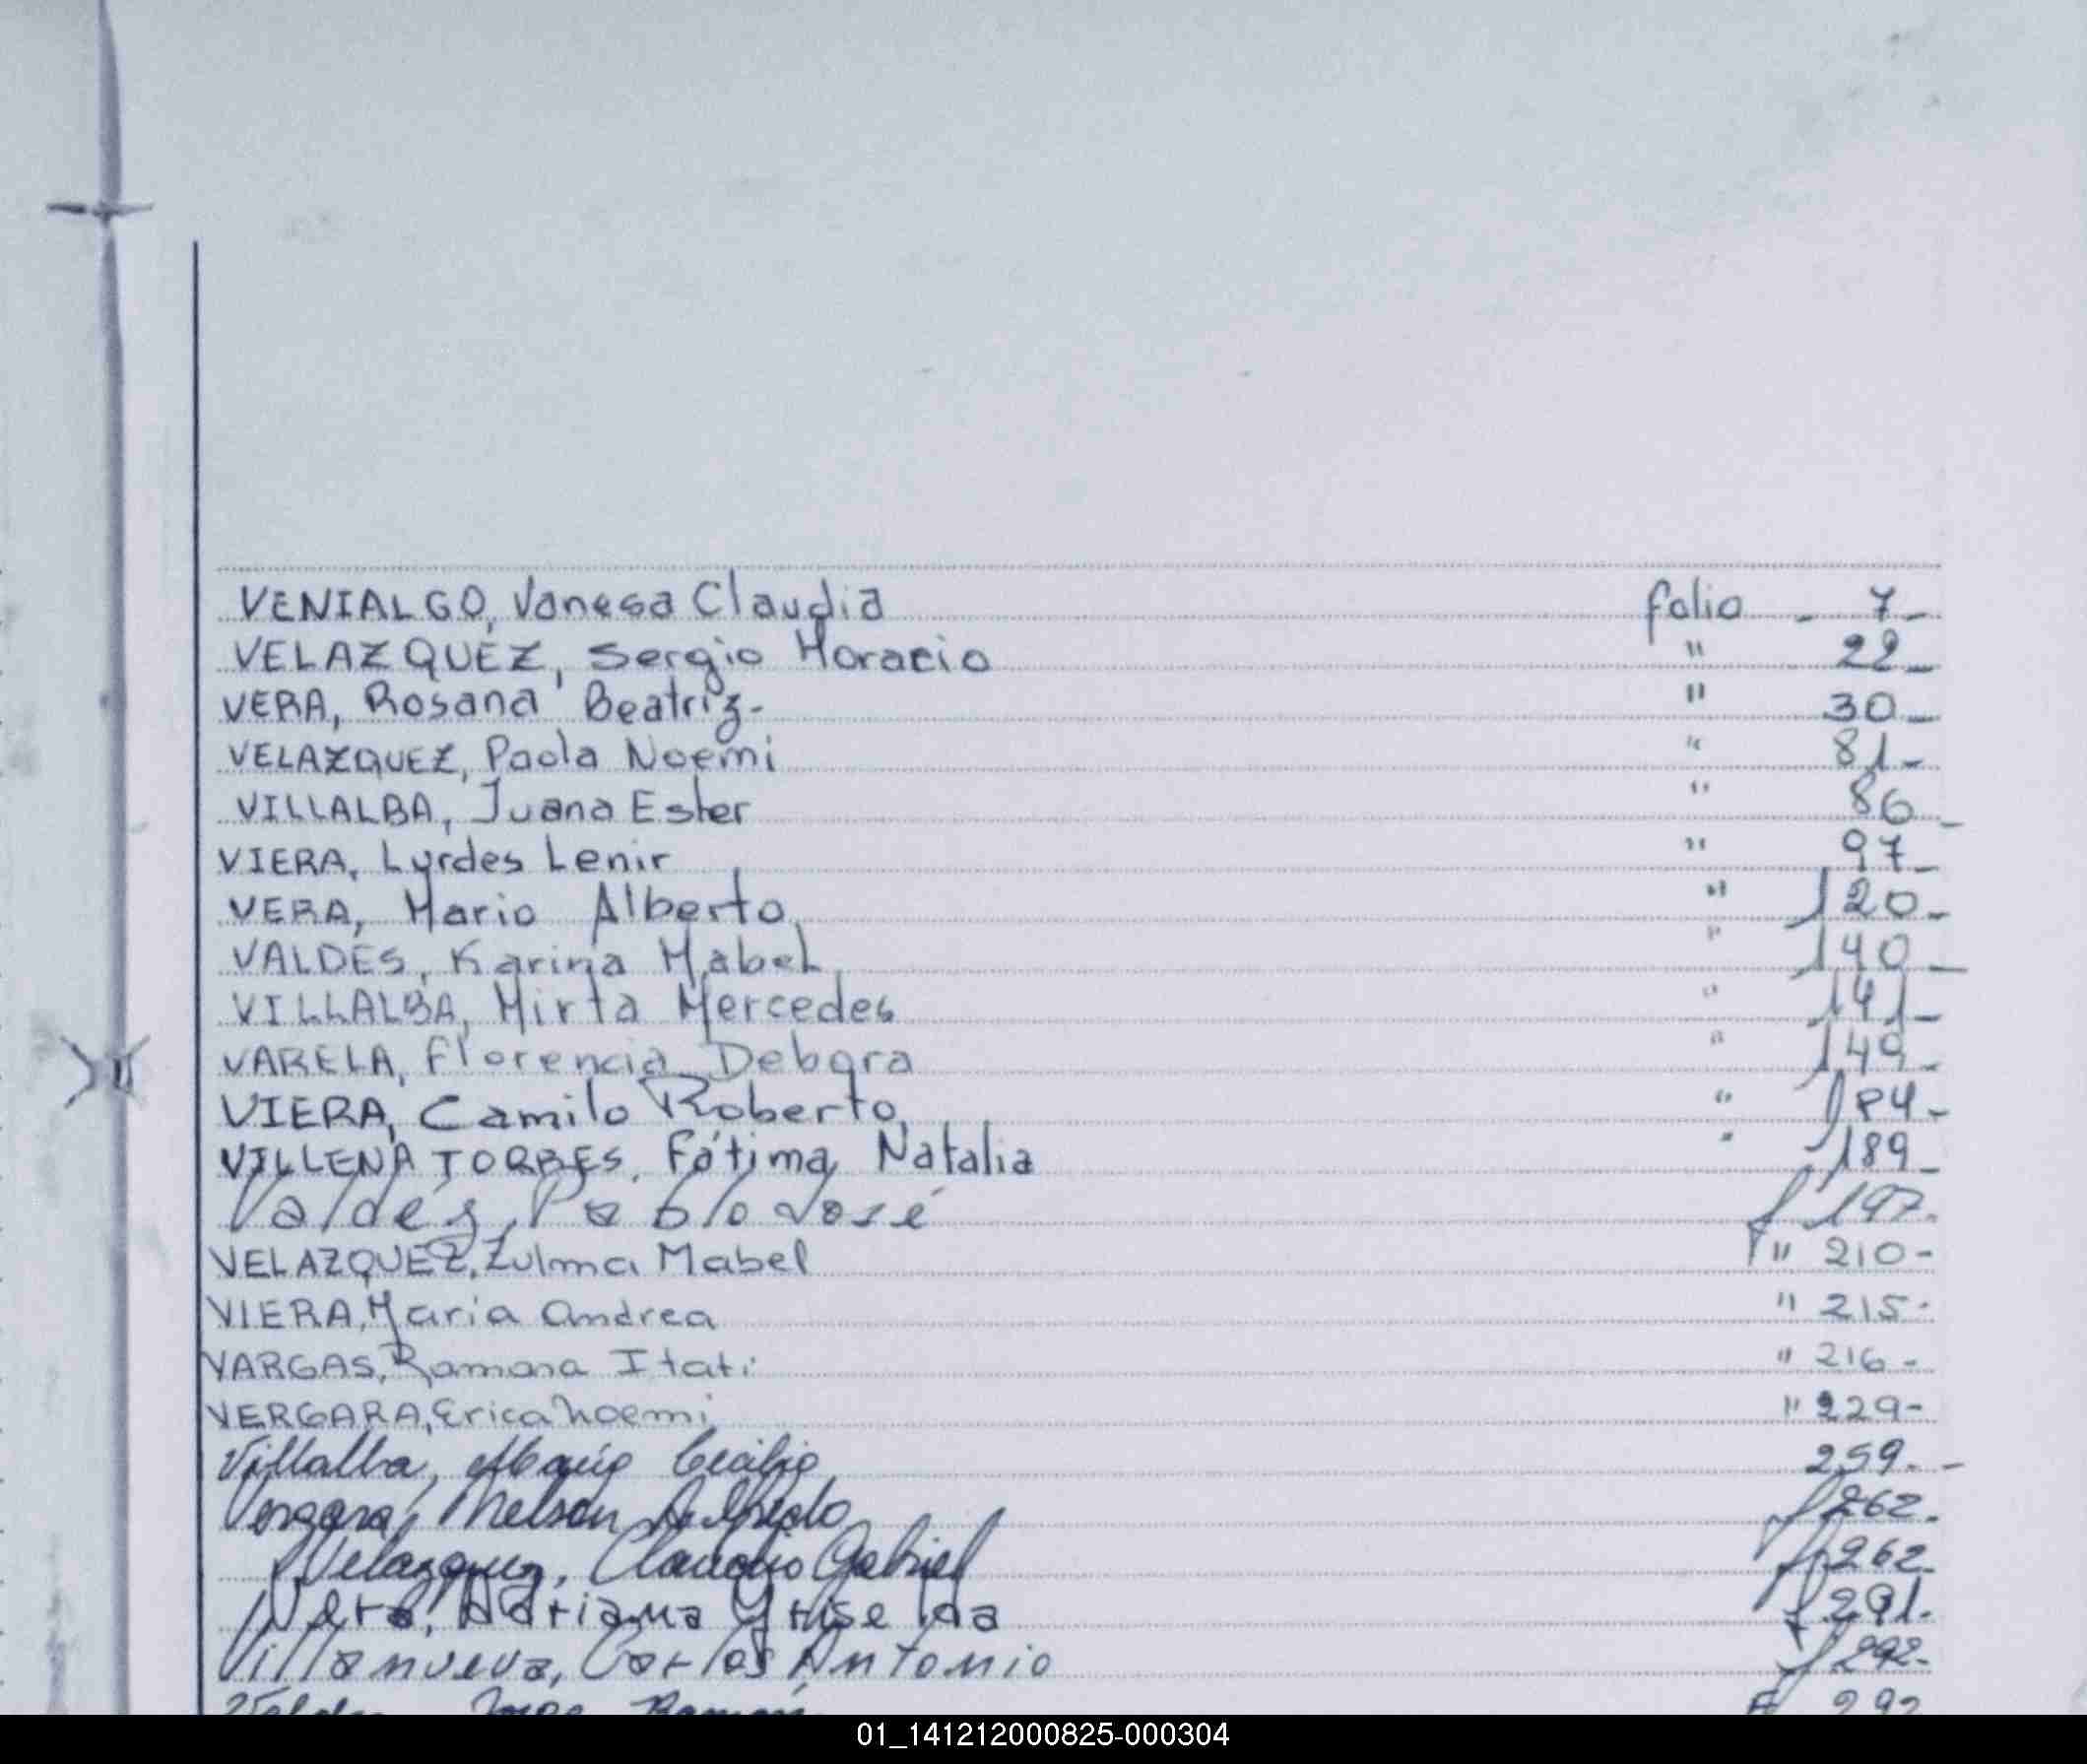 VENIALGO, Vanesa Claudia folio - 7 -
VELAZQUEZ, Sergio Horacio " 22 -
VERA, Rosana Beatriz- " 30 -
VELAZQUEZ, Paola Noemi " 81 -
VILLALBA, Juana Ester " 86 -
VIERA, Lurdes Lenir " 97 -
VERA, Mario Alberto " 120 -
VALDES, Karina Mabel " 140 -
VILLALBA, Mirta Mercedes " 141 -
VARELA, Florencia Debora " 149 -
VIERA, Camilo Roberto " 184 -
VILLENA TORRES, Fátima Natalia " 189 -
Valdéz, Pablo José f 197.
VELAZQUEZ, Zulma Mabel " 210 -
VIERA, Maria Andrea " 215 -
VARGAS, Ramona Itati " 216 -
VERGARA, Erica Noemi " 229 -
Villalba, María Cecilia 259. -
Vergara, Nelson Alfredo f 262.
Velazquez, Claudio Gabriel f 262.
Vera, Adriana Griselda f 291.
Villanueva, Carlos Antonio f 292.
Jorge Ramón F 292
01_141212000825-000304